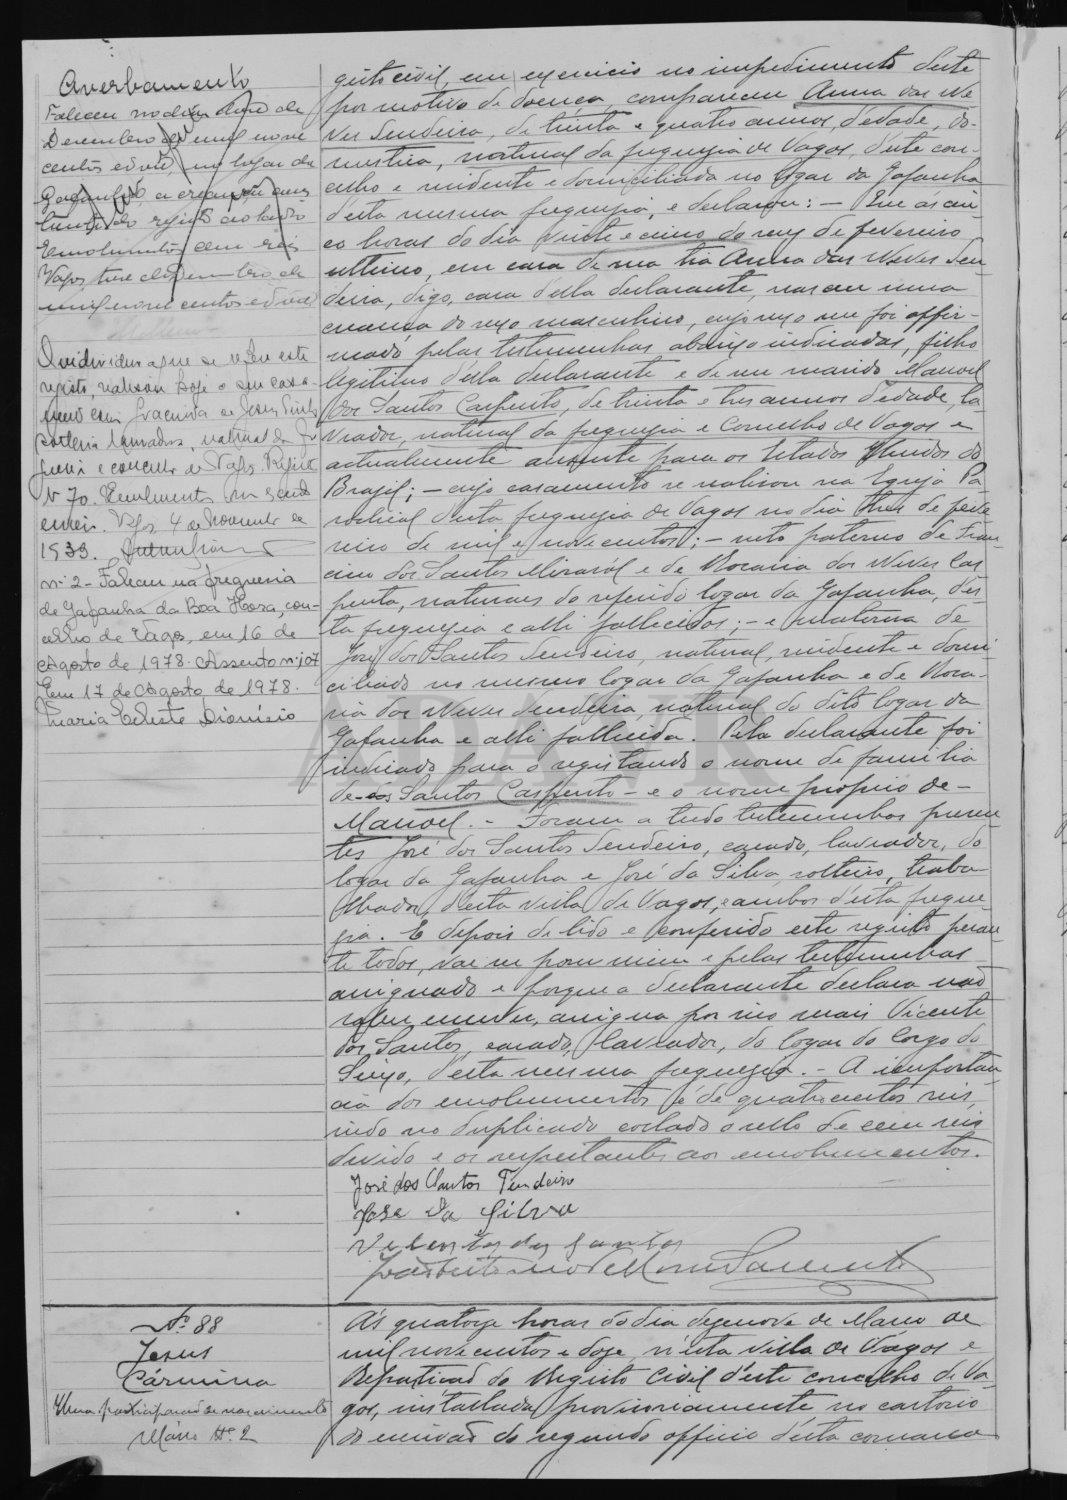 Averbamento
Faleceu no dia dois de
Dezembro de mil nove
centos e doze, no logar da
Gafanha, a creança a que
este registo ao lado
Emolumentos cem reis
Vagos, treze de Dezembro de
mil novecentos e doze
O individuo a que se refere este
registo, realisou hoje o seu casa-
mento com Gracinda de Jesus
solteira lavradora, natural da fre
guesia e concelho de Vagos. Registo
Nº 70. Emolumentos
Vagos 4 de Novembro de
1933.
nº 2 - Faleceu na freguesia
de Gafanha da Boa Hora, con-
celho de Vagos, em 16 de
Agosto de 1978. Assento nº 107
Em 17 de Agosto de 1978.
Maria Celeste Dionisio
gisto civil, em exercicio no impedimento deste
por motivo de doença, compareceu Anna das Ne
ves Sendeira, de trinta e quatro annos, d'edade, do-
mestica, natural da freguezia de Vagos, d'este con-
celho e residente e domiciliada no logar da Gafanha
d'esta mesma freguezia, e declarou: — Que ás cin-
co horas do dia vinte e cinco do mez de fevereiro
ultimo, em casa de sua tia Anna das Neves Sen-
deira, digo, casa della declarante, nasceu uma
creança do sexo masculino, cujo sexo me foi affir-
mado pelas testemunhas abaixo indicadas, filho
legitimo della declarante e de seu marido Manoel
dos Santos Carpento, de trinta e tres annos d'edade, la-
vrador, natural da freguezia e concelho de Vagos e
actualmente ausente para os Estados Unidos do
Brazil; — cujo casamento se realisou na Egreja Pa-
rochial desta freguezia de Vagos no dia de feve
reiro de mil e novecentos; — neto paterno de Fran-
cisco dos Santos e de Rosaria das Neves Car
penta, naturaes do referido logar da Gafanha, des-
ta freguezia e alli fallecidos; — e materno de
José dos Santos Sendeiro, natural, residente e domi-
ciliado no mesmo logar da Gafanha e de Rosa-
ria das Neves Sendeira, natural do dito logar da
Gafanha e alli fallecida. Pela declarante foi
indicado para o registando o nome de familia
de - dos Santos Carpento - e o nome proprio de -
Manoel. - Foram a tudo testemunhas presen
tes José dos Santos Sendeiro, casado, lavrador, do
logar da Gafanha e José da Silva, solteiro, traba-
lhador, d'esta villa de Vagos, e ambos d'esta fregue-
zia. E depois de lido e conferido este registo peran-
te todos, vae ser por mim e pelas testemunhas
assignado e porque a declarante declara não
saber escrever, assigna por seu mais Vicente
dos Santos, casado, lavrador, do logar do Corgo do
Seixo, d'esta mesma freguezia. - A importan-
cia dos emolumentos é de quatrocentos reis,
sendo no duplicado collado o sello de cem reis
devido e os respeitantes aos emolumentos.
José dos Santos Tendeiro
Jose da Silva
dos Santos
Nº 88
Jesus
Cármina
Uma participação de nascimento
Maço Nº 2
Ás quatorze horas do dia dezenove de Março de
mil novecentos e doze, n'esta villa de Vagos e
Repartição do Registo Civil d'este concelho de Va-
gos, installada provisoriamente no cartorio
do escrivão do segundo officio d'esta comarca